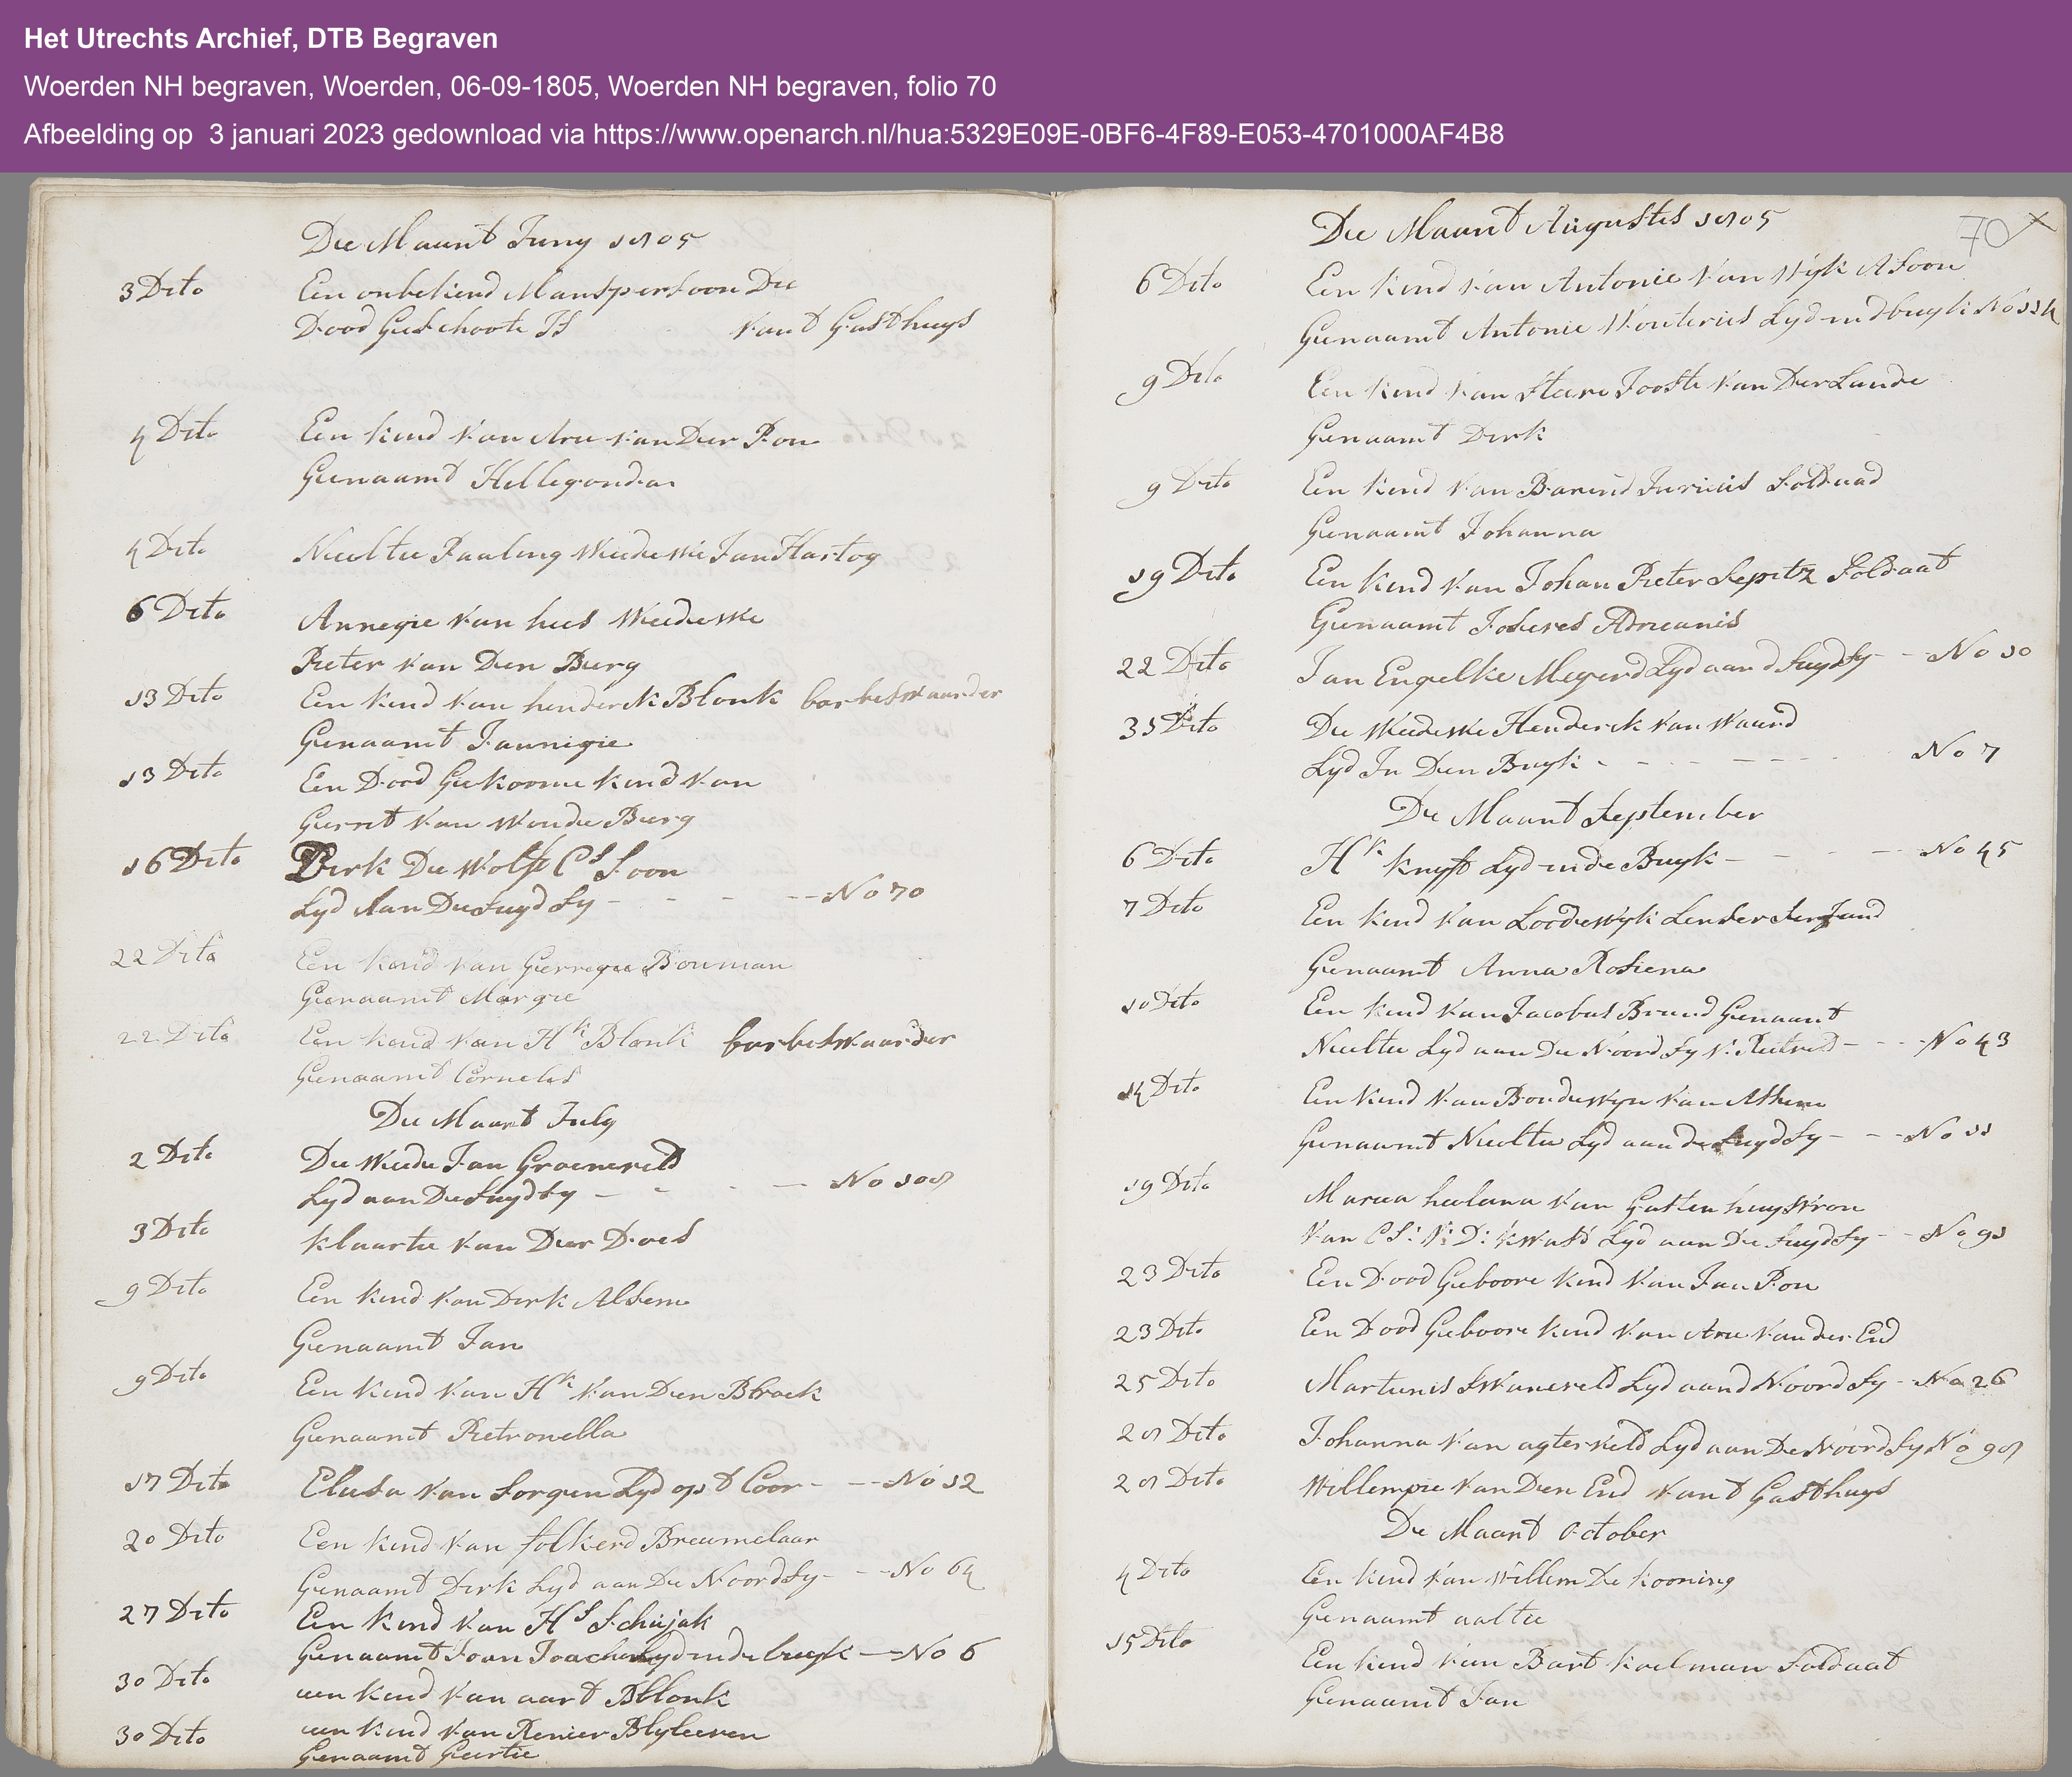 Het Utrechts Archief, DTB Begraven
Woerden NH begraven, Woerden, 06-09-1805, Woerden NH begraven, folio 70
Afbeelding op 3 januari 2023 gedownload via https://www.openarch.nl/hua:5329E09E-0BF6-4F89-E053-4701000AF4B8
De Maant Juny 1805
3 Dito Een onbekend Manspersoon Die
Dood Geschoote Is van t Gasthuys
4 Dito Een kind van Arie van Der Pon
Genaamt Hillegonda
4 Dito Neeltie Paaling Weeduwe Jan Hartog
6 Dito Annegie van hees Weeduwe
Pieter van Den Burg
13 Dito Een kind van henderik Blonk
Genaamt Jannigie
13 Dito Een Dood Gekoome kind van
Gerrit van Woude Burg
16 Dito Dirk De Wolf Cs Soon
Lyd Aan De Suyd Sy - - - No 70
22 Dito Een kind van Gerregie Bouman
Genaamt Margie
22 Dito Een kind van Hk Blonk
Genaamt Cornelis
De Maant July
2 Dito De Weede Jan Groeneveld
Lyd aan De Suyd Sy - - - No 108
3 Dito klaartie van Der Does
9 Dito Een kind van Dirk Alsem
Genaamt Jan
9 Dito Een kind van Hk van Den Broek
Genaamt Pietronella
17 Dito Elisa van Sorgen Lyd op t Coor - - No 12
20 Dito Een kind van folkerd Breumelaar
Genaamt Dirk Lyd aan De Noord Sy - - No 64
27 Dito Een kind van Hs Schujak
Genaamt Joan Joachem Lyd in de buyk - No 6
30 Dito een kind van aart Bllonk
30 Dito een kind van Renier Blyleeven
Genaamt Geertie
De Maant Augustes 1805
70 x
6 Dito Een kind van Antonie van Wyk ASoon
Genaamt Antonie Wouteries Lyd ind buyk No 114
9 Dito Een kind van Joost van Der Lande
Genaamt Dirk
9 Dito Een kind van Barend Juriens Soldaad
Genaamt Johanna
19 Dito Een kind van Johan Pieter Sepitz Soldaat
Genaamt Adrieanis
22 Dito Jan Engelke Megerd Lyd aan d Suyd Sy - - No 10
31 Dito De Weeduwe Henderik van Waard
Lyd In Den Buyk - - - - No 7
De Maant September
6 Dito Hk knyft Lyd in de Buyk - - - No 45
7 Dito Een kind van Loodewyk
Genaamt Anna Rosiena
10 Dito Een kind van Jacobus Brand Genaamt
Neeltie Lyd aan De Noord Sy - - - No 43
14 Dito Een kind van Boudewyn van Alsem
Genaamt Neeltie Lyd aan de Suyd Sy - - - No 11
19 Dito Maria heelena van Gasten huys vrou
van CS: V: D: kwast Lyd aan De Suyd Sy - - No 91
23 Dito Een Dood Geboore kind van Jan Pon
23 Dito Een Dood Geboore kind van Arie van der End
25 Dito Martienis Swaneveld Lyd aand Noord Sy - No 26
28 Dito Johanna van agterveld Lyd aan De Noord Sy No 98
28 Dito Willempie van Den End van t Gasthuys
De Maant October
4 Dito Een kind van Willem De kooning
Genaamt aaltie
15 Dito Een kind van Bart koelman Soldaat
Genaamt Jan